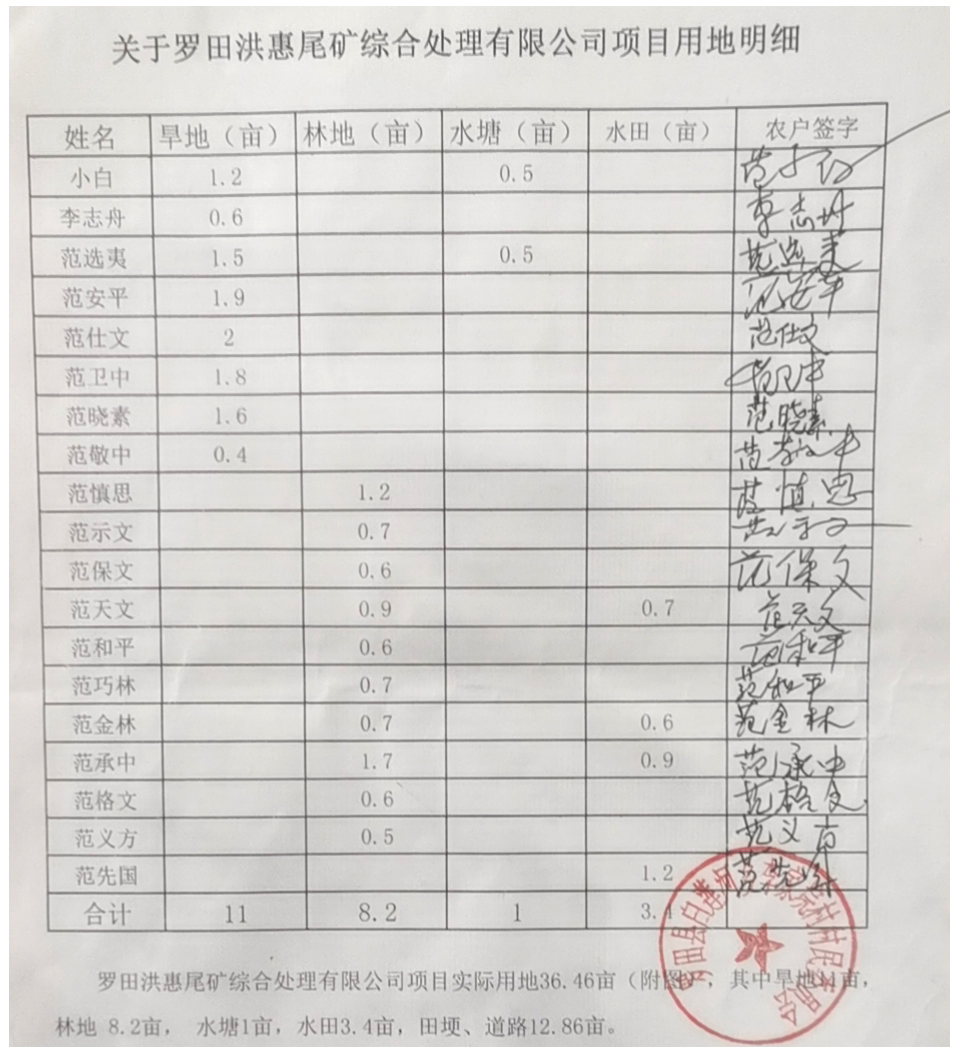 关于罗田洪惠尾矿综合处理有限公司项目用地明细
姓名 旱地（亩） 林地（亩） 水塘（亩） 水田（亩） 农户签字
小白 1.2 0.5
李志舟 0.6 李志舟
范选夷 1.5 0.5 范选夷
范安平 1.9 范安平
范仕文 2 范仕文
范卫中 1.8 范卫中
范晓素 1.6 范晓素
范敬中 0.4 范敬中
范慎思 1.2 范慎思
范示文 0.7
范保文 0.6 范保文
范天文 0.9 0.7 范天文
范和平 0.6 范和平
范巧林 0.7 范和平
范金林 0.7 0.6 范金林
范承中 1.7 0.9 范承中
范格文 0.6 范格文
范义方 0.5 范义方
范先国 1.2
合计 11 8.2 1 3.4
罗田洪惠尾矿综合处理有限公司项目实际用地36.46亩（附图），其中旱地11亩，
林地 8.2亩， 水塘1亩，水田3.4亩，田埂、道路12.86亩。